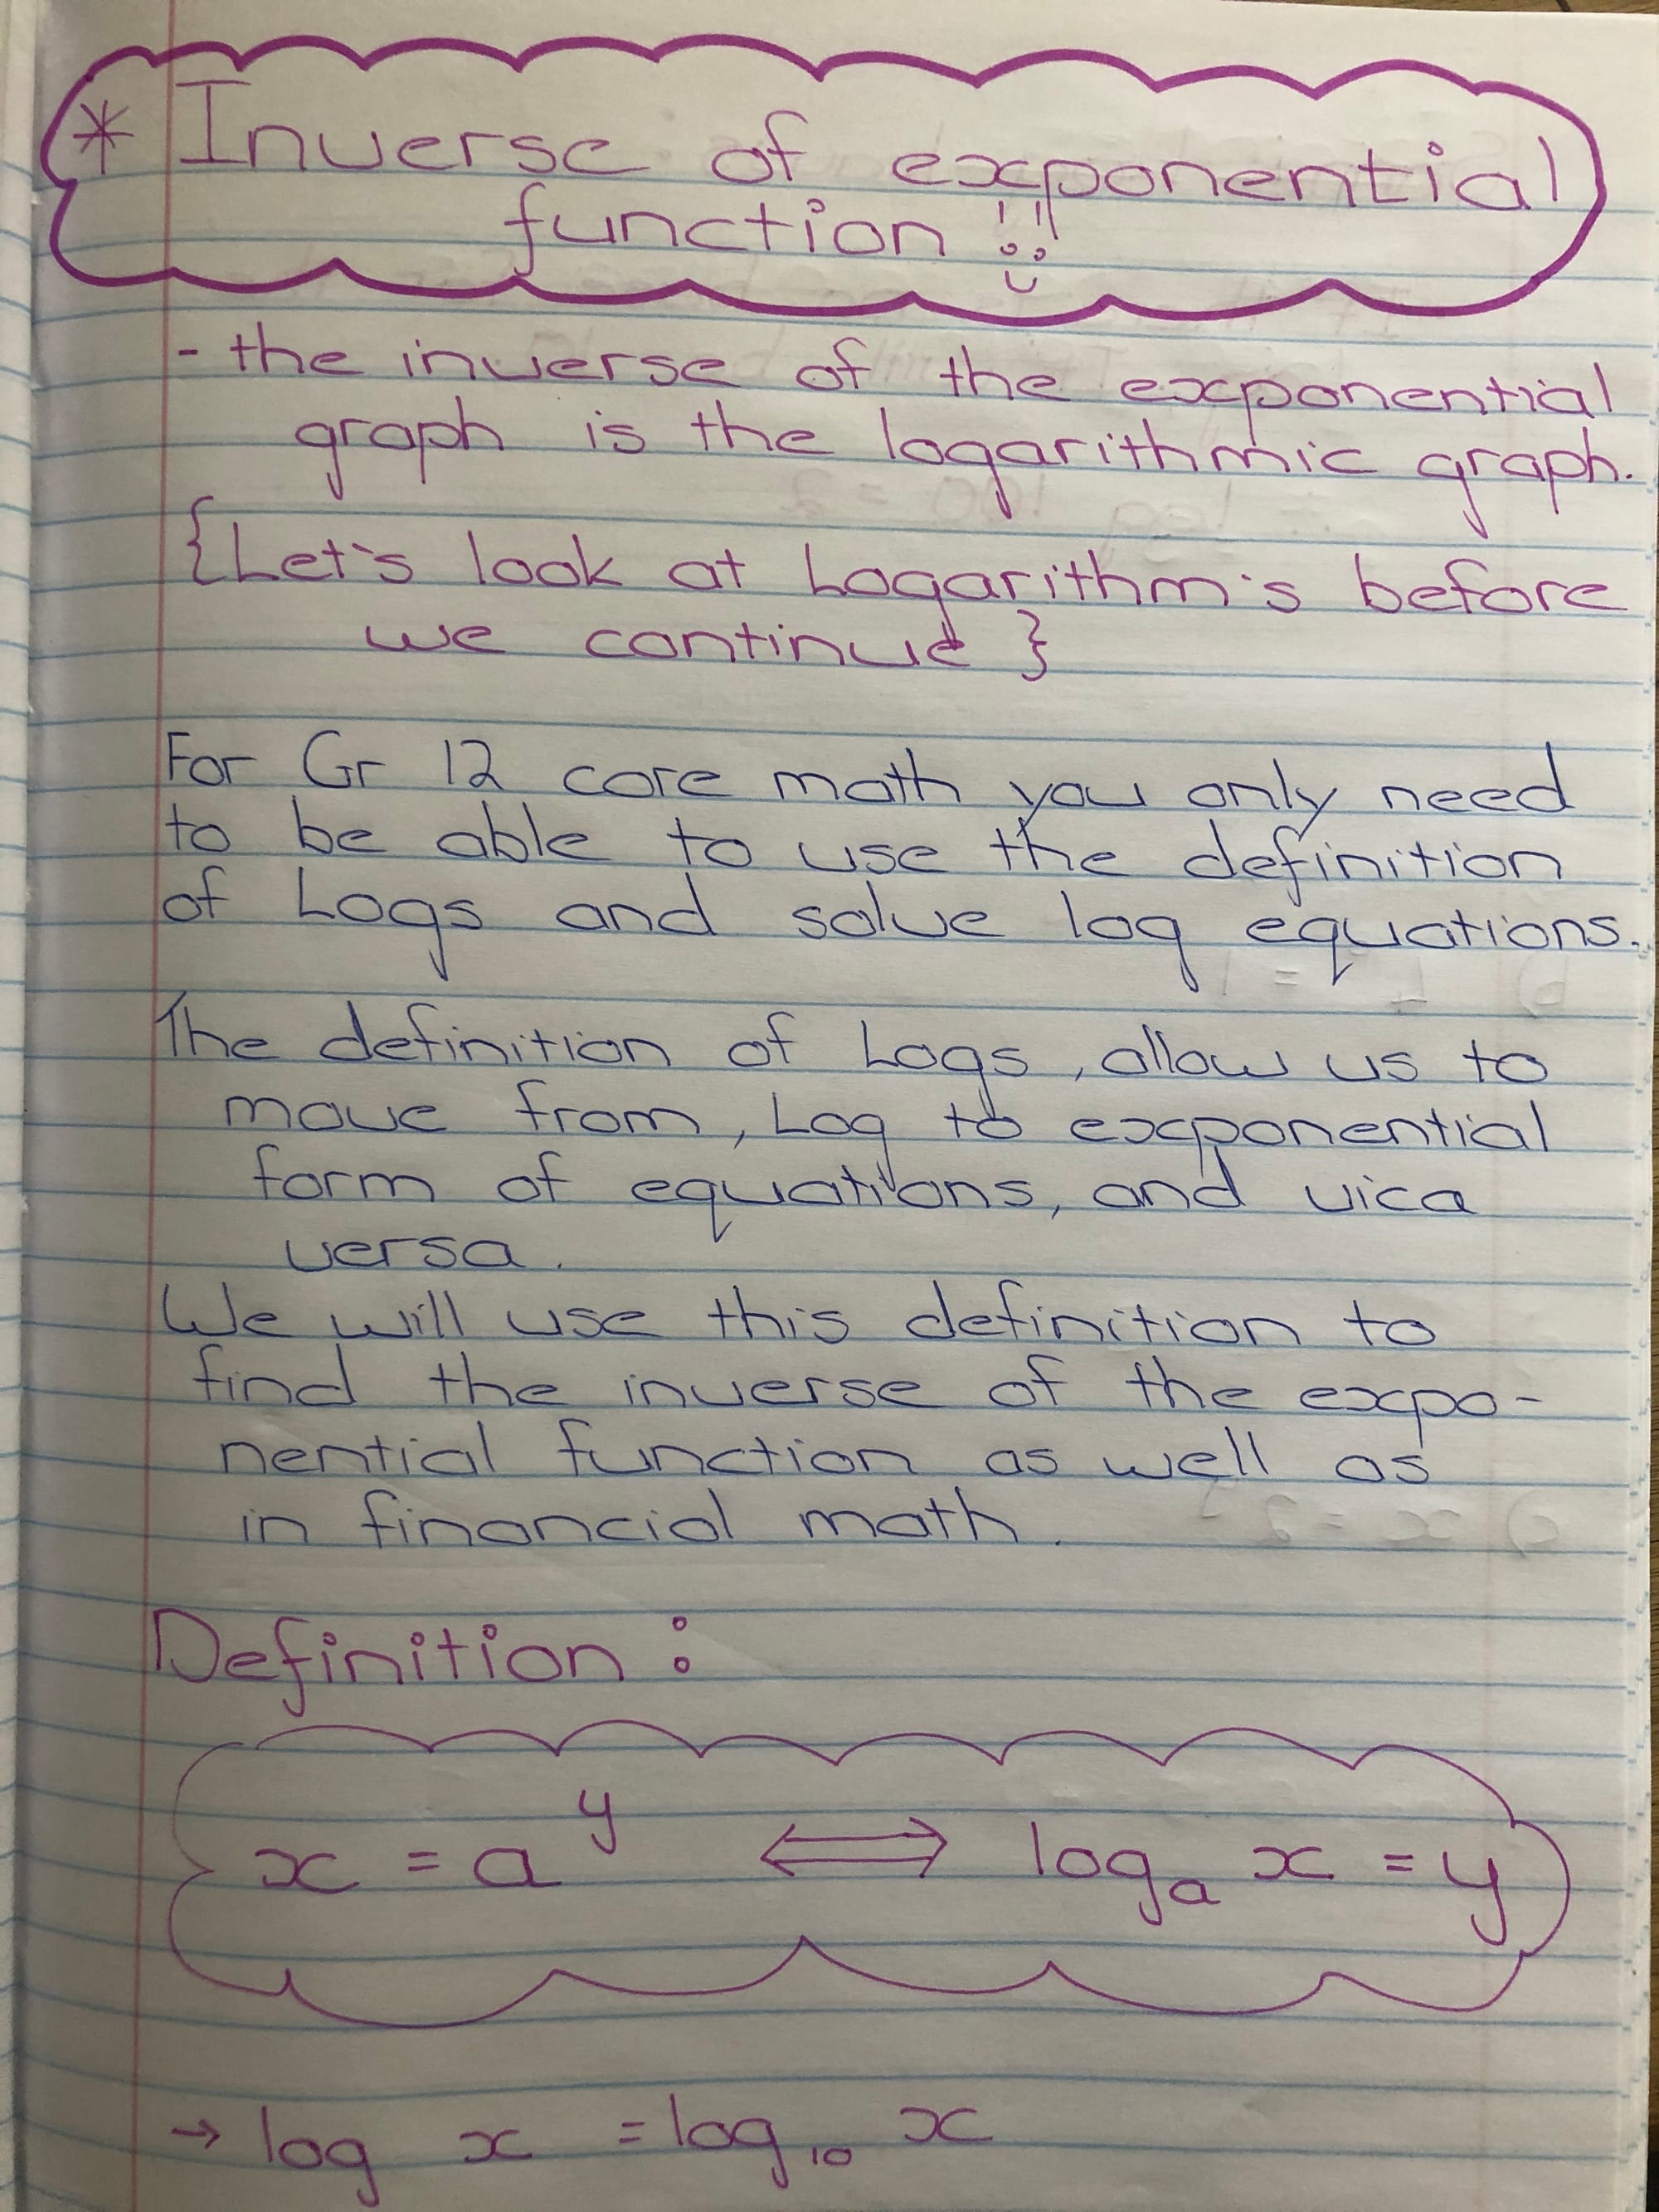 * Inverse of exponential
function !!
- the inverse of the exponential
graph is the logarithmic graph.
{Let's look at Logarithm's before
we continue}
For Gr 12 core math you only need
to be able to use the definition
of Logs and solve log equations.
The definition of Logs, allow us to
move from, Log to exponential
form of equations, and vica
versa.
We will use this definition to
find the inverse of the expo-
nential function as well as
in financial math.
Definition :
x = a^y ⟺ log_a x = y
→ log x = log_10 x